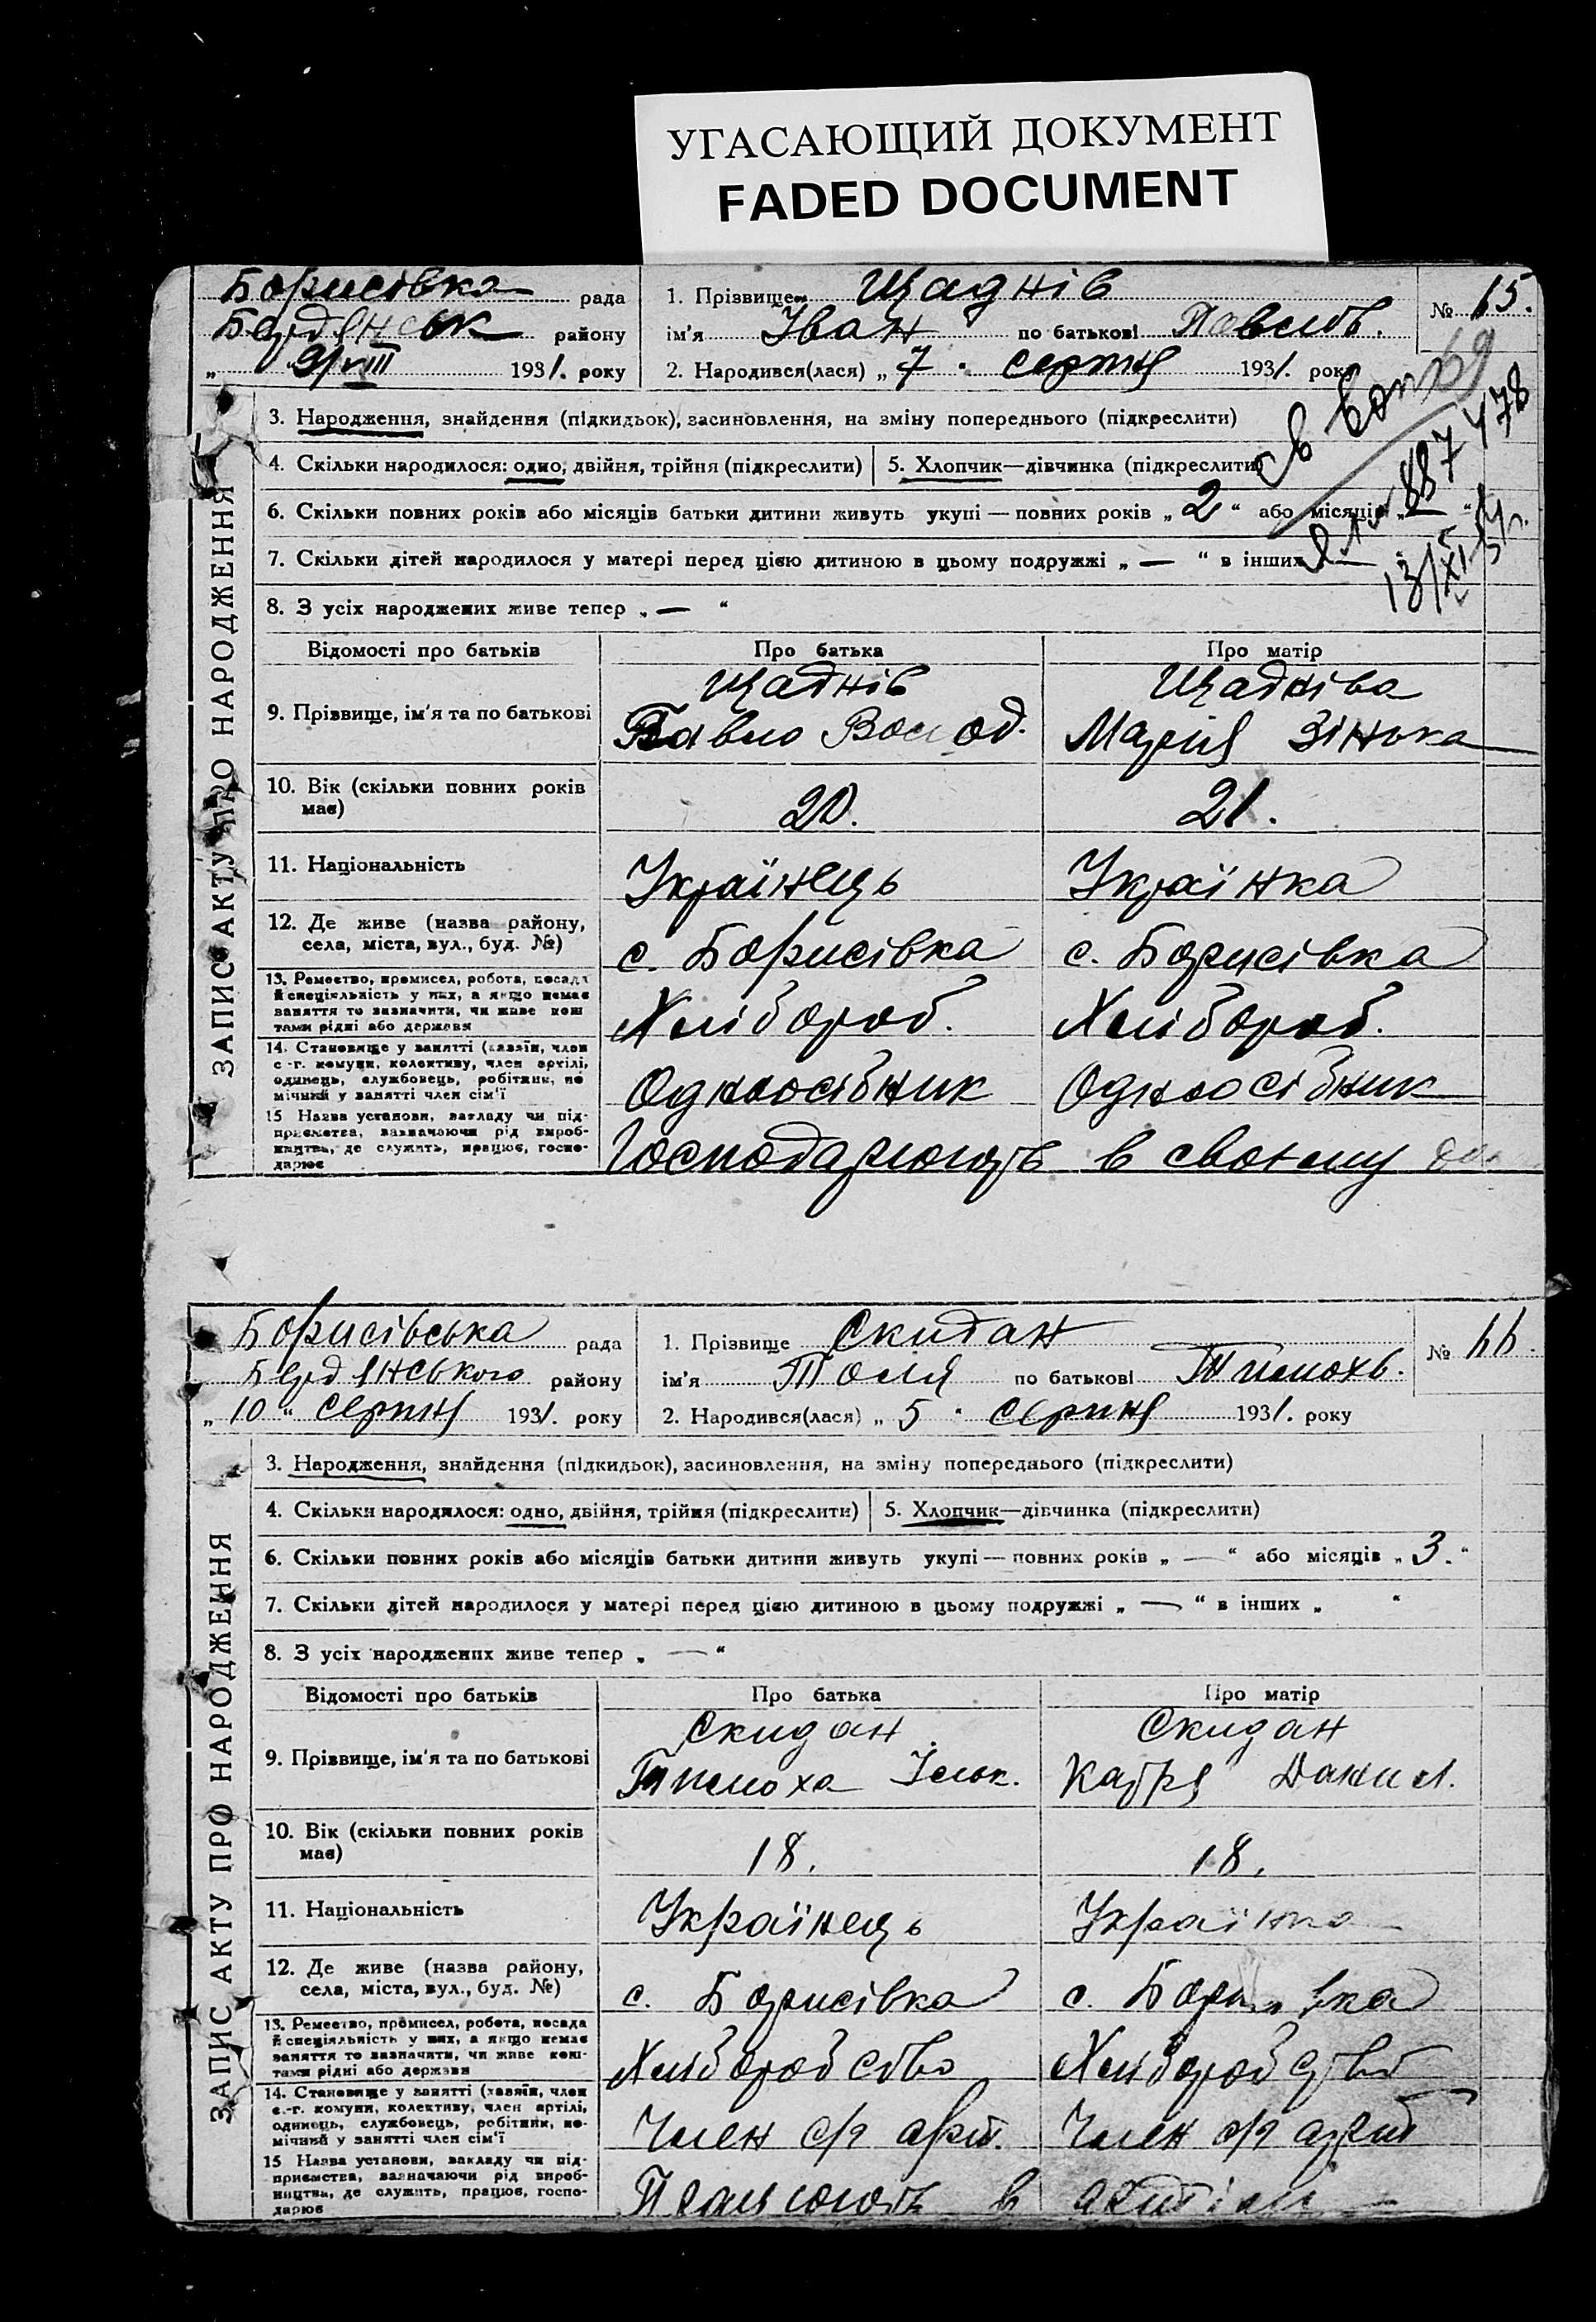 УГАСАЮЩИЙ ДОКУМЕНТ
FADED DOCUMENT
Борисівка рада
Бердянськ району
„ 9/VIII 1931. року
1. Прізвище Щаднів
ім'я Іван по батькові Павлов.
2. Народився(лася) „ 7 " серпня 1931. року
№ 65.
3. Народження, знайдення (підкидьок), засиновлення, на зміну попереднього (підкреслити)
4. Скільки народилося: одно, двійня, трійня (підкреслити)
5. Хлопчик—дівчинка (підкреслити)
6. Скільки повних років або місяців батьки дитини живуть укупі — повних років „ 2 “ або місяців „ — “
7. Скільки дітей народилося у матері перед цією дитиною в цьому подружжі „ — “ в інших —
8. З усіх народжених живе тепер „ — “
ЗАПИС АКТУ ПРО НАРОДЖЕННЯ
Відомості про батьків
Про батька
Про матір
9. Прізвище, ім'я та по батькові
Щаднів
Павло Волод.
Щадніва
Марія Зінька
10. Вік (скільки повних років має)
20.
21.
11. Національність
Українець
Українка
12. Де живе (назва району,
села, міста, вул., буд. №)
с. Борисівка
с. Борисівка
13. Ремество, промисел, робота, посада
й спеціяльність у них, а якщо немає
заняття то зазначити, чи живе кош
тами рідні або держави
Хлібороб.
Хлібороб.
14. Становище у занятті (хазяїн, член
с.-г. комуни, колективу, член артілі,
одинець, службовець, робітник, по
мічний у занятті член сім'ї
Одноосібник
Одноосібник
15 Назва установи, закладу чи під-
приємства, зазначаючи рід вироб-
ництва, де служить, працює, госпо-
дарює
Господарюють в своєму
Борисівська рада
Бердянського району
„ 10 “ серпня 1931. року
1. Прізвище Скидан
ім'я Толя по батькові Тимохв.
2. Народився(лася) „ 5 " серпня 1931. року
№ 66.
3. Народження, знайдення (підкидьок), засиновлення, на зміну попереднього (підкреслити)
4. Скільки народилося: одно, двійня, трійня (підкреслити)
5. Хлопчик—дівчинка (підкреслити)
6. Скільки повних років або місяців батьки дитини живуть укупі — повних років „ — “ або місяців „ 3. “
7. Скільки дітей народилося у матері перед цією дитиною в цьому подружжі „ — “ в інших „ “
8. З усіх народжених живе тепер „ — “
ЗАПИС АКТУ ПРО НАРОДЖЕННЯ
Відомості про батьків
Про батька
Про матір
9. Прізвище, ім'я та по батькові
Скидан
Тимоха Ільк.
Скидан
Катря Данил.
10. Вік (скільки повних років має)
18.
18.
11. Національність
Українець
Українка
12. Де живе (назва району,
села, міста, вул., буд. №)
с. Борисівка
с. Борисівка
13. Ремество, промисел, робота, посада
й спеціяльність у них, а якщо немає
заняття то зазначити, чи живе кош-
тами рідні або держави
Хліборобство
Хліборобство
14. Становище у занятті (хазяїн, член
с.-г. комуни, колективу, член артілі,
одинець, службовець, робітник, по-
мічний у занятті член сім'ї
Член с/г арт.
Член с/г артіл
15 Назва установи, закладу чи під-
приємства, зазначаючи рід вироб-
ництва, де служить, працює, госпо-
дарює
Працюють в артілі